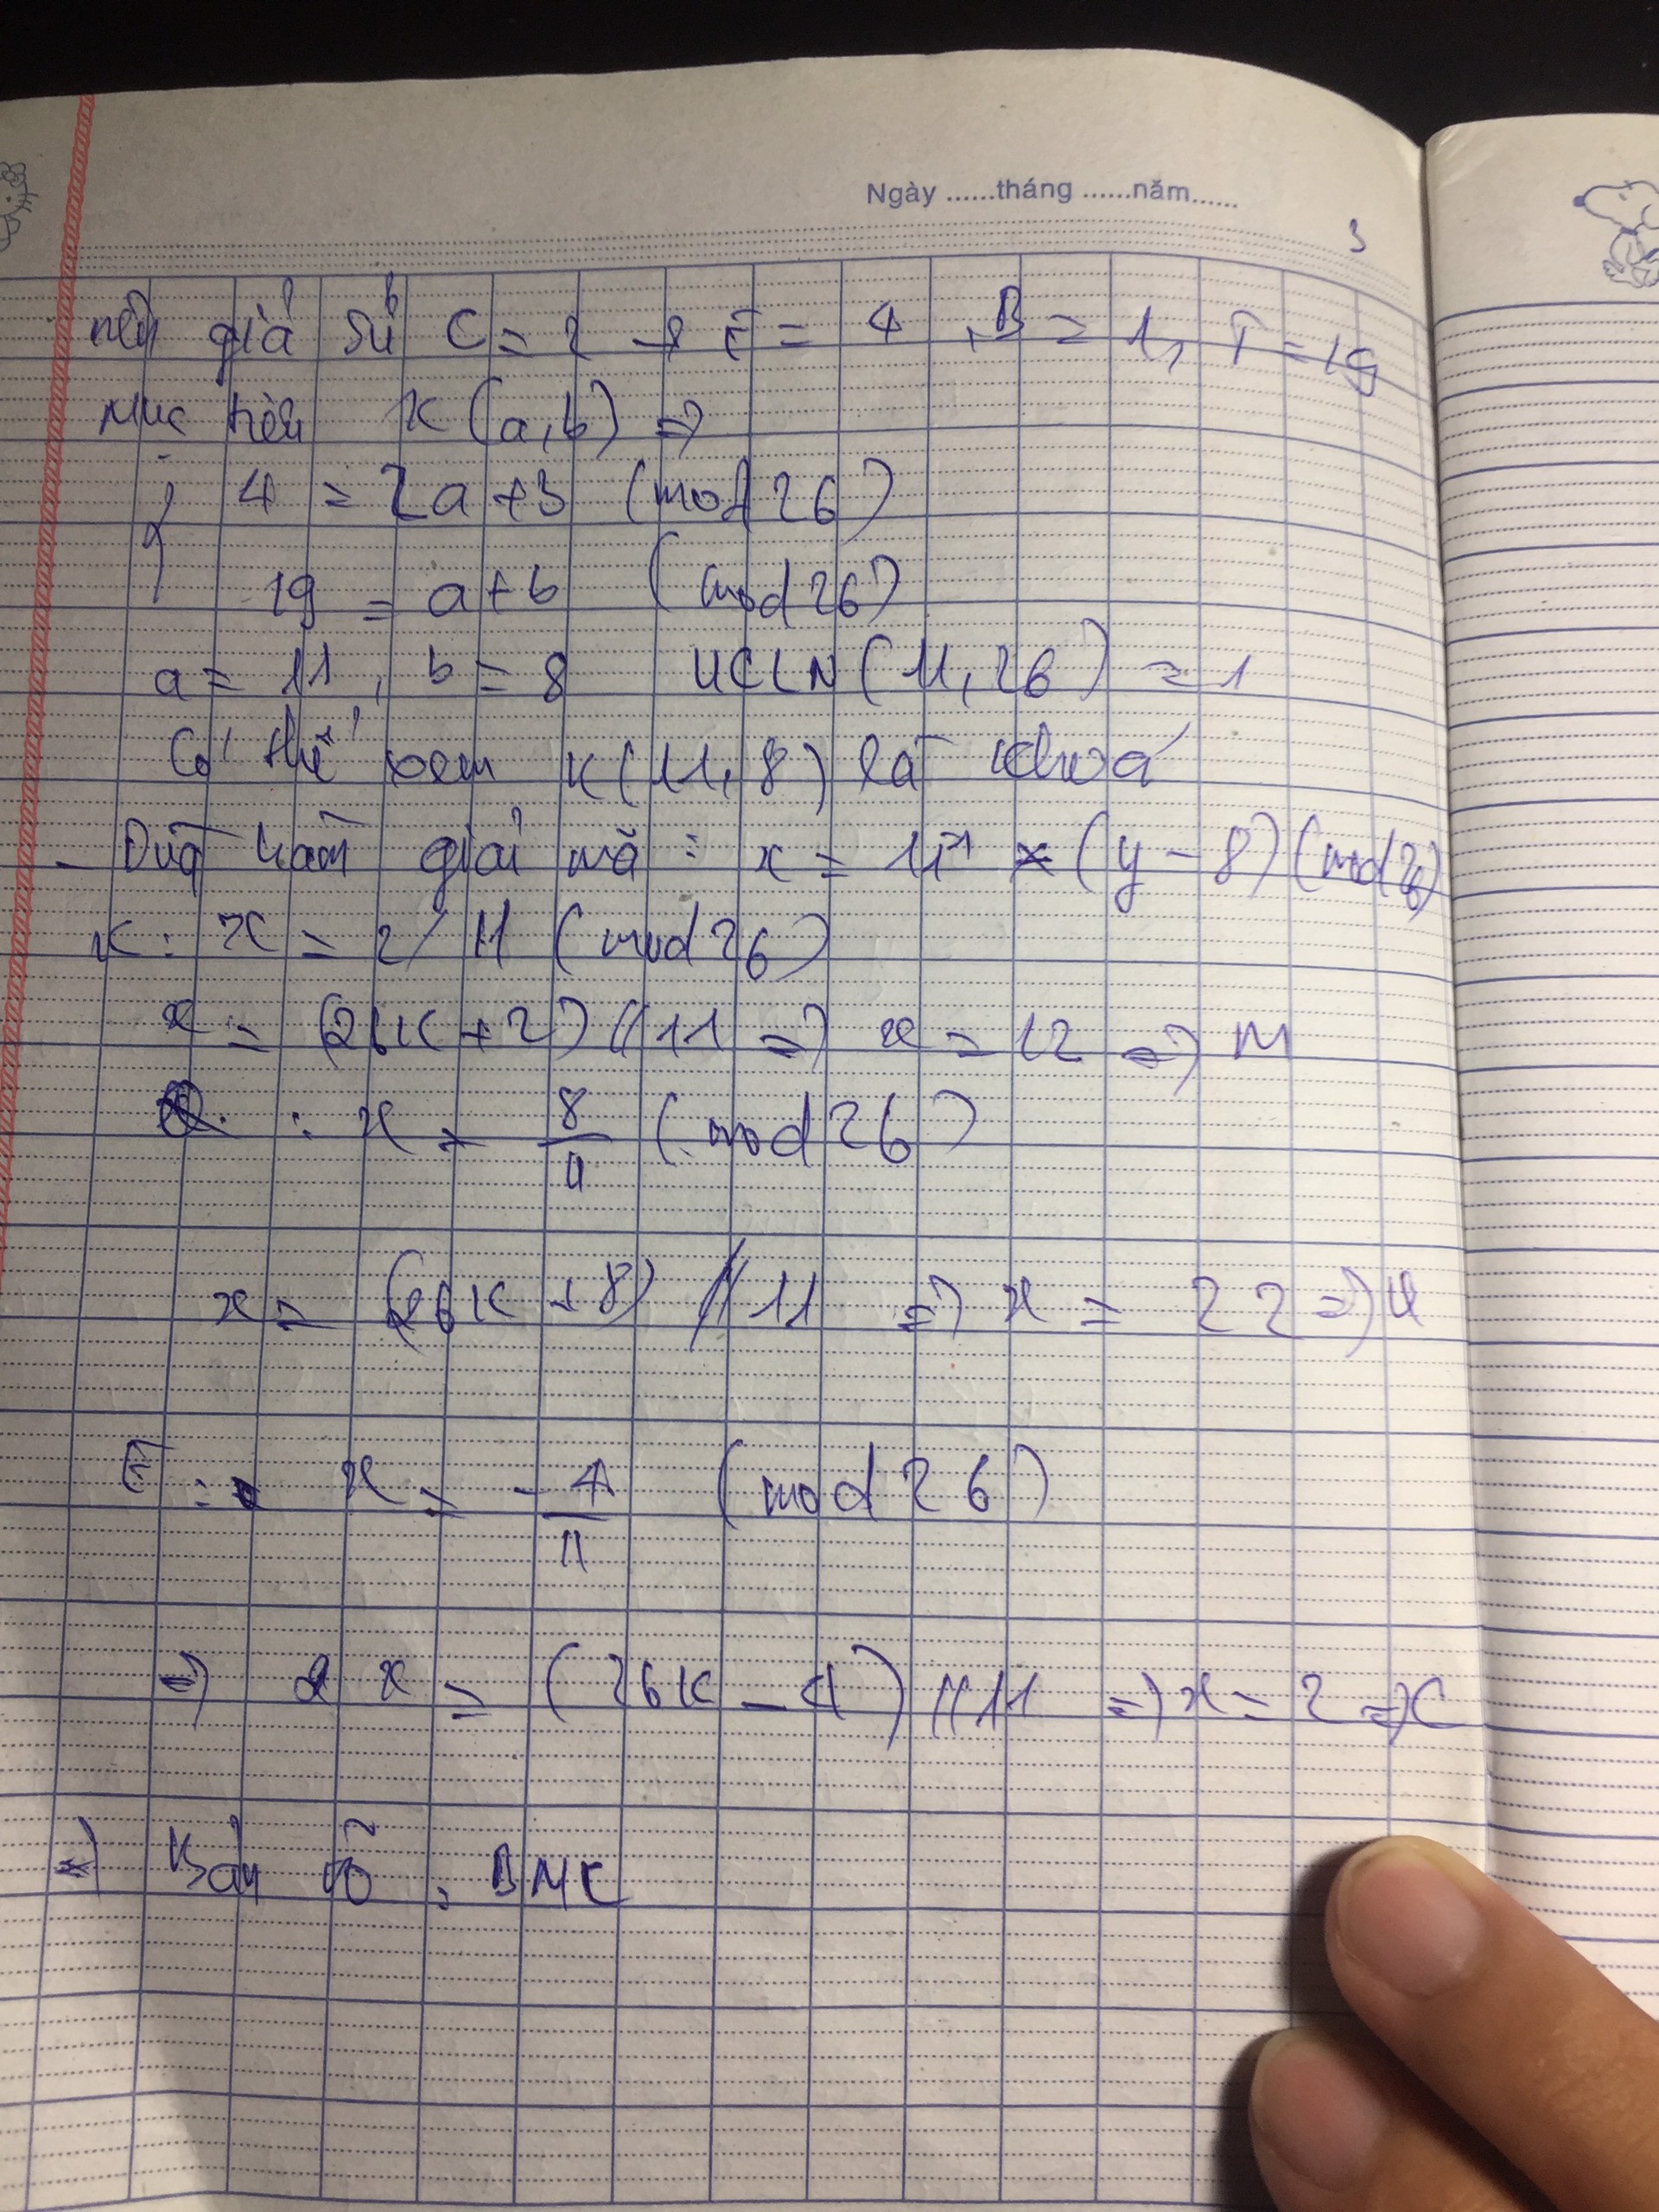 Ngày ......tháng ......năm......
3
nên giả sử C = 2 → E = 4 , B = 1, T = 19
Mục tiêu K(a,b) =>
4 = 2a + b (mod 26)
19 = a + b (mod 26)
a = 11, b = 8 UCLN(11, 26) = 1
Có thể xem K(11, 8) là khoá
- Dùng hàm giải mã : x = 11⁻¹ * (y - 8) (mod 26)
K : x = 2/11 (mod 26)
x = (26K + 2) // 11 => x = 12 => M
Q : x = 8/11 (mod 26)
x = (26K + 8) // 11 => x = 22 =>
E : x = -4/11 (mod 26)
=> x = (26K - 4) // 11 => x = 2 => C
=> Bản rõ : BMC